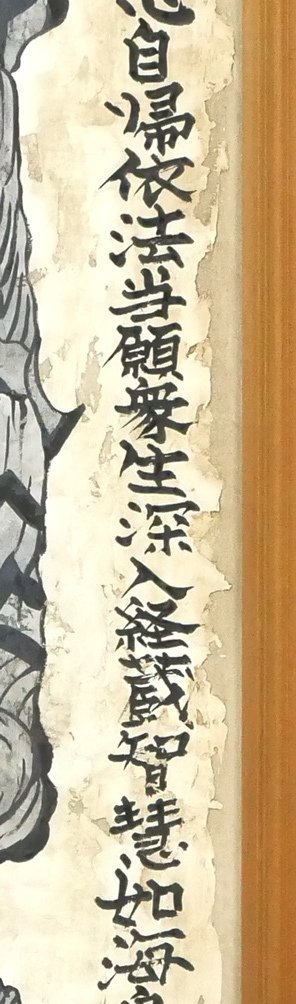 自帰依法当願衆生深入経蔵智慧如海